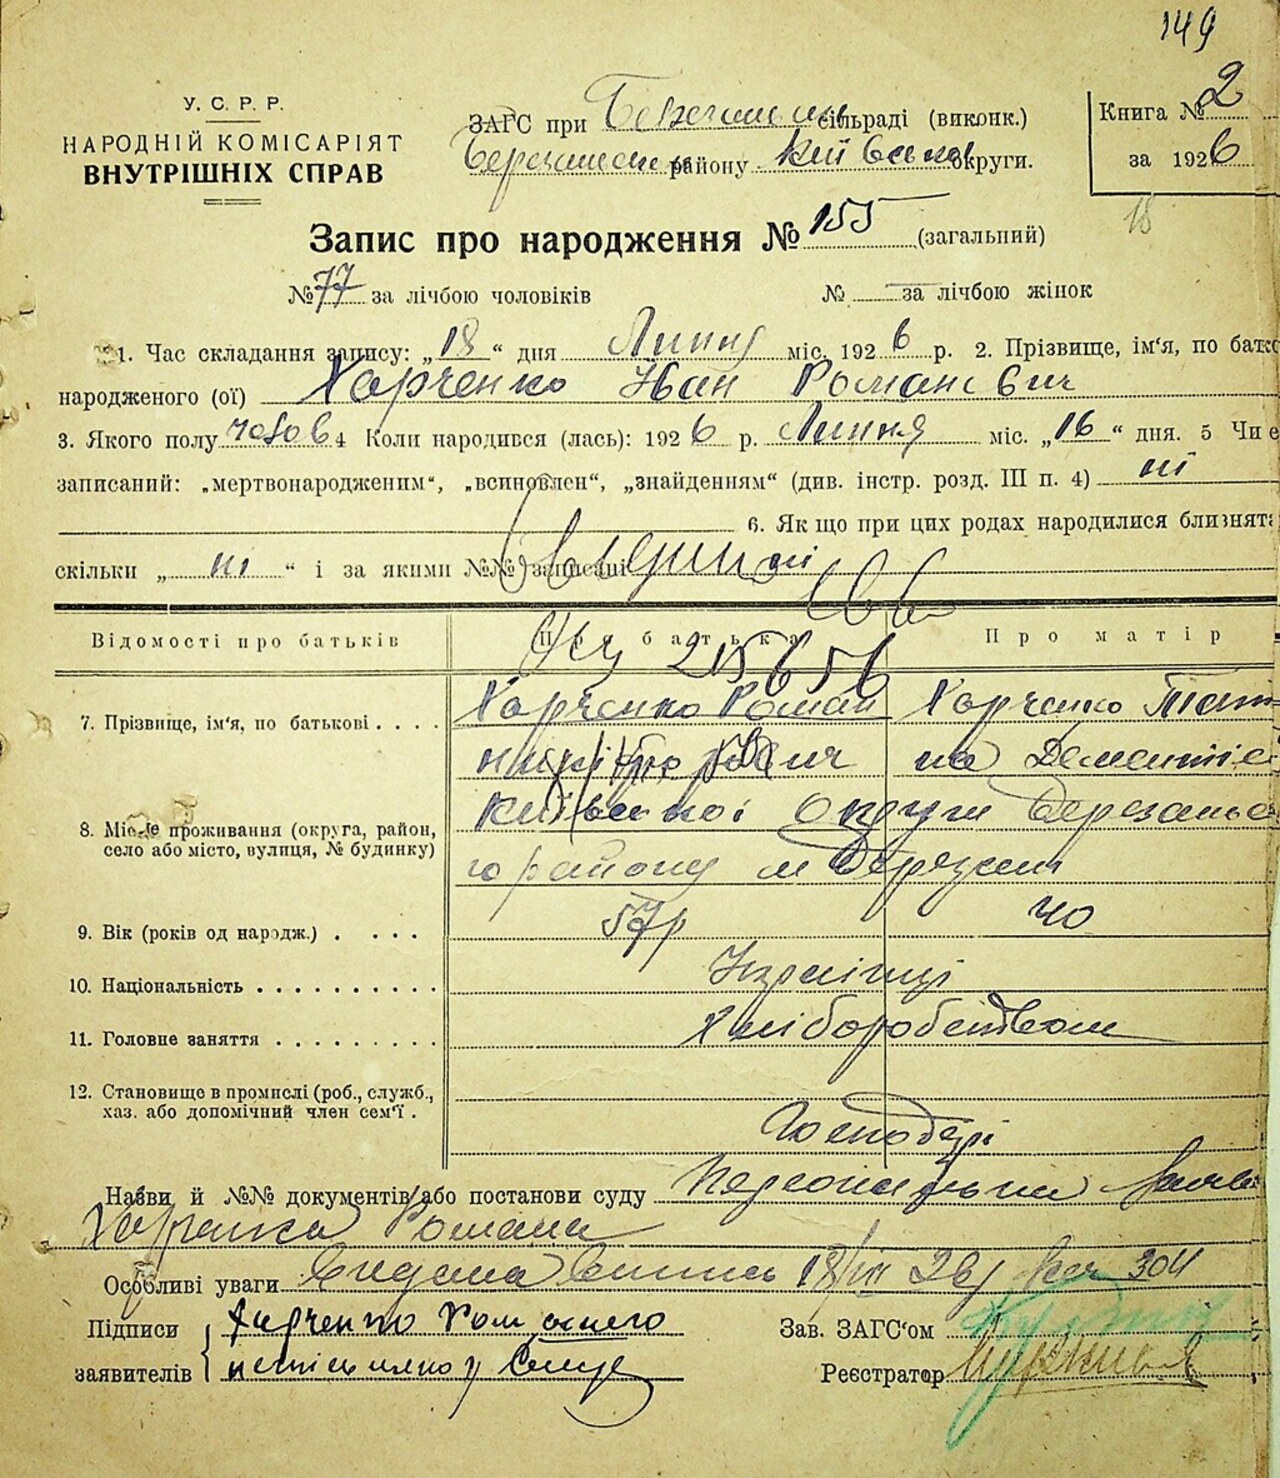 149
У. С. Р. Р.
НАРОДНІЙ КОМІСАРІЯТ
ВНУТРІШНІХ СПРАВ
ЗАГС при сільраді (виконк.)
району Київської округи.
Книга № 2
за 1926
18
Запис про народження № 155 (загальний)
№ 77 за лічбою чоловіків № за лічбою жінок
1. Час складання запису: „18“ дня Липня міс. 1926 р. 2. Прізвище, ім'я, по батко
народженого (ої) Харченко Іван Романович
3. Якого полу чолов 4 Коли народився (лась): 1926 р. Липня міс. „16“ дня. 5 Чи є
записаний: „мертвонародженим“, „всиновлен“, „знайденням“ (див. інстр. розд. III п. 4) ні
6. Як що при цих родах народилися близнята
скільки „ні“ і за якими №№ записані ні
Відомості про батьків Про батька Про матір
7. Прізвище, ім'я, по батькові . . . . Харченко Роман Харченко Тат
на Дементіє
8. Місце проживання (округа, район, село або місто, вулиця, № будинку) Київської Округи Березансько
го району м Березань
9. Вік (років од народж.) . . . . 57р 40
10. Національність . . . . . . . . . . Українці
11. Головне заняття . . . . . . . . . Хліборобством
12. Становище в промислі (роб., служб., хаз. або допомічний член сем'ї . Господарі
Назви й №№ документів або постанови суду
Харченка Романа
Особливі уваги Видана Випись 18/VII 26 304
Підписи Харченко Зав. ЗАГС'ом
заявителів Реєстратор